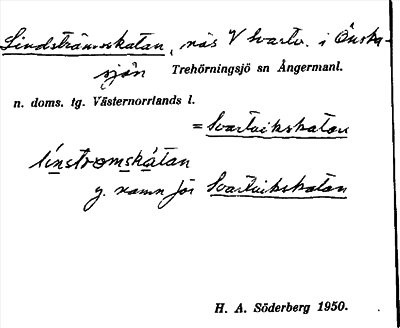 Lindströmskatan, näs V Svartv. i Önska-
sjön Trehörningsjö sn Ångermanl.
n. doms. tg. Västernorrlands l.
= Svartvikskatan
linstromskátan
y. namn för Svartvikskatan
H. A. Söderberg 1950.